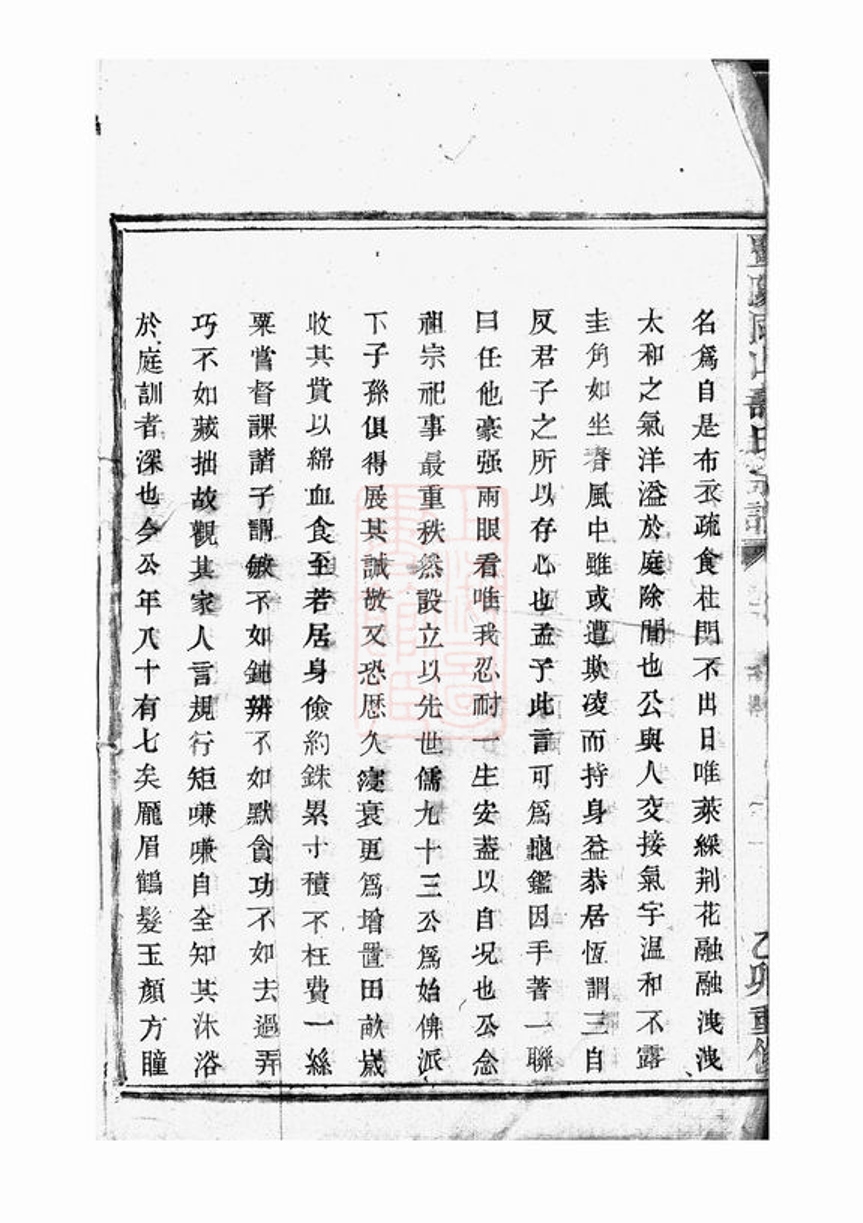 名爲自是布衣疏食杜門不出日唯萊綵荆花融融洩洩
太和之氣洋溢於庭除間也公與人交接氣宇温和不露
圭角如坐春風中雖或遭欺凌而持身益恭居恆謂三自
反君子之所以存心也孟子此言可爲龜鑑因手著一聯
曰任他豪强兩眼看唯我忍耐一生安蓋以自况也公念
祖宗祀事最重秩然設立以先世儒九十三公爲始俾派
下子孫俱得展其誠敬又恐厯久寖衰更爲增置田畝嵗
收其貲以綿血食至若居身儉約銖累寸積不枉費一絲
粟嘗督課諸子謂敏不如鈍辨不如默貪功不如去過弄
巧不如藏拙故觀其家人言規行矩嗛嗛自全知其沐浴
於庭訓者深也今公年八十有七矣龐眉鶴髮玉顏方瞳
乙卯重修